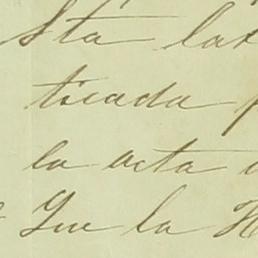 Sta la
ticada
la acta
Que la H